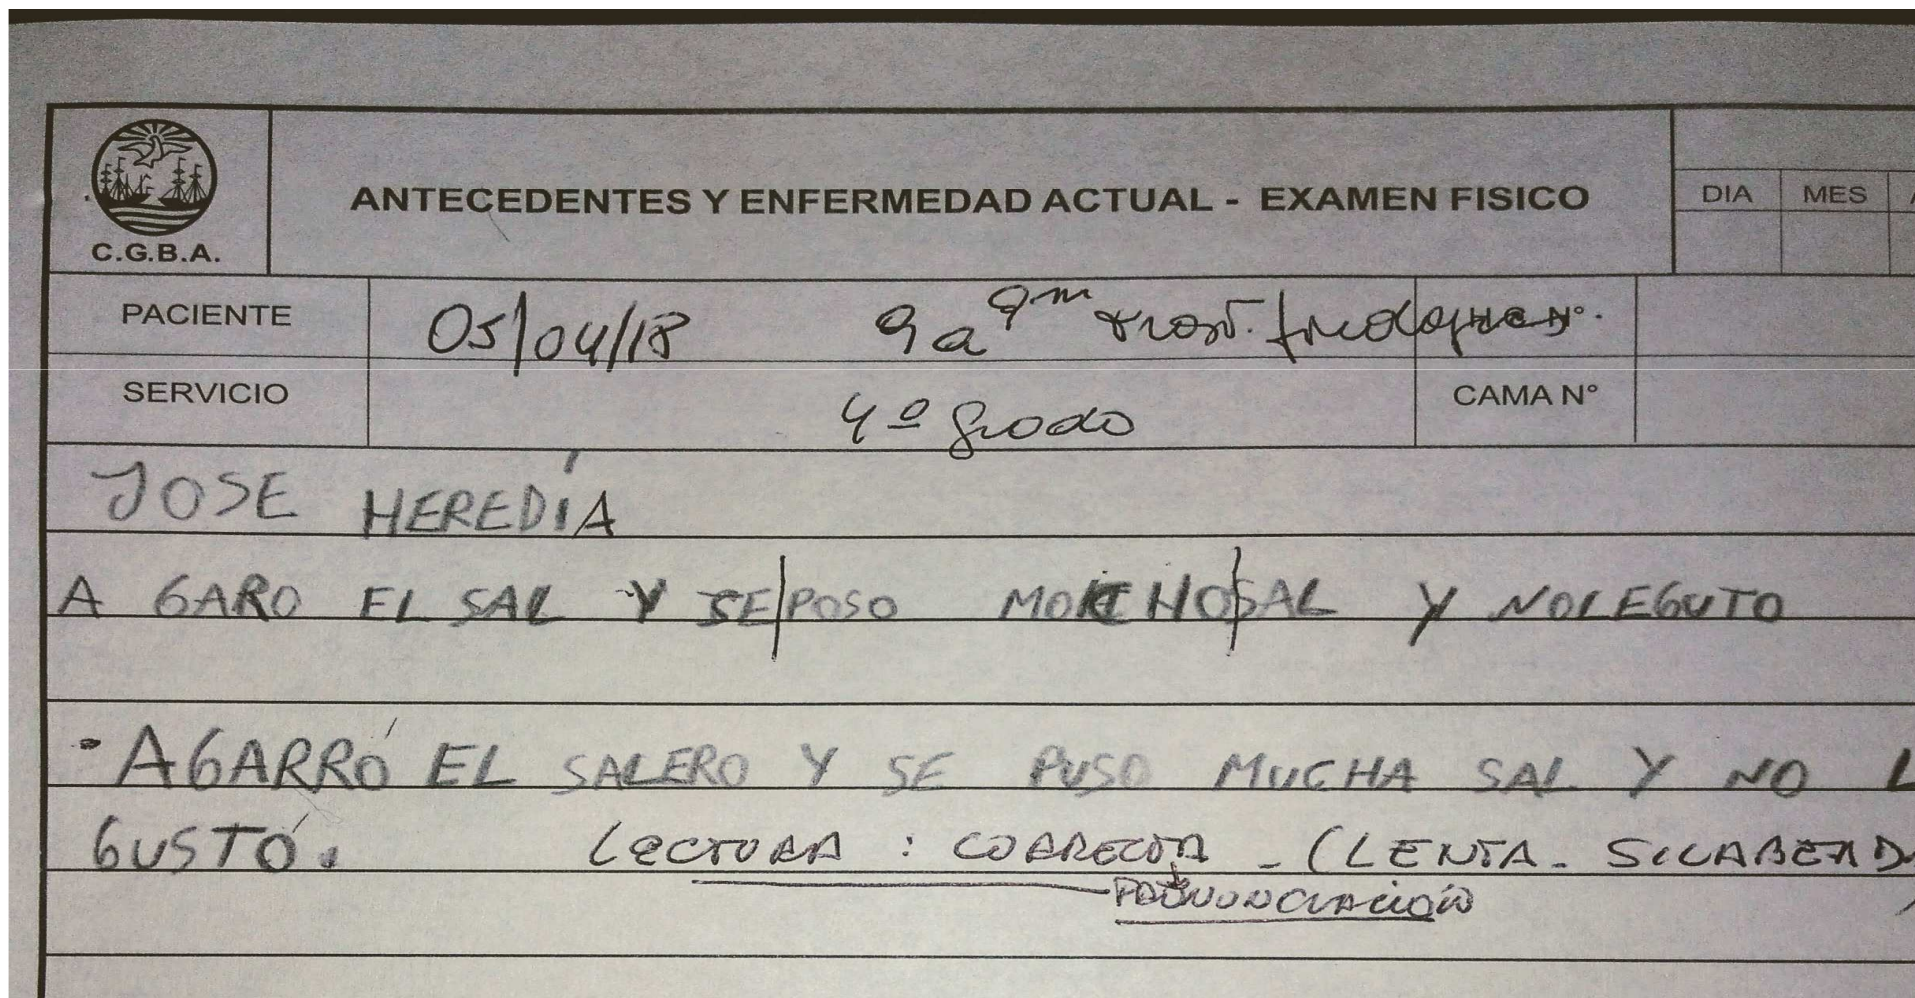 C.G.B.A.
ANTECEDENTES Y ENFERMEDAD ACTUAL - EXAMEN FISICO
DIA MES
PACIENTE 05/04/18 9a 9m
SERVICIO 4º grado CAMA Nº
JOSE HEREDÍA
A GARO EL SAL Y SE|POSO MOHCHO|SAL Y NOLEGUTO
- AGARRÓ EL SALERO Y SE PUSO MUCHA SAL Y NO L
GUSTÓ. LECTURA : CORRECTA - (LENTA - SILABEAD
PRONUNCIACIÓN